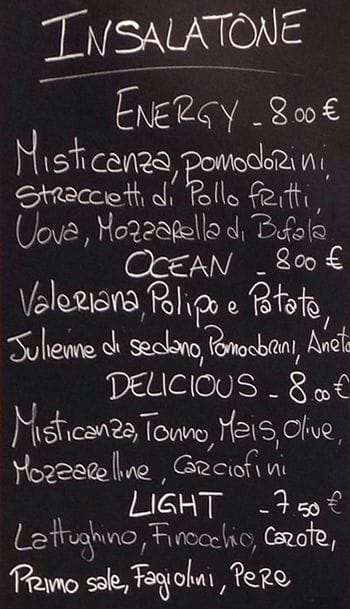 INSALATONE
ENERGY - 8.00 €
Misticanza, pomodorini,
Straccietti di Pollo fritti,
Uova, Mozzarella di Bufala
OCEAN - 8.00 €
Valeriana, Polipo e Patate,
Julienne di sedano, Pomodorini, Aneto
DELICIOUS - 8.00 €
Misticanza, Tonno, Mais, Olive,
Mozzarelline, Carciofini
LIGHT - 7.50 €
Lattughino, Finocchio, Carote,
Primo sale, Fagiolini, Pere